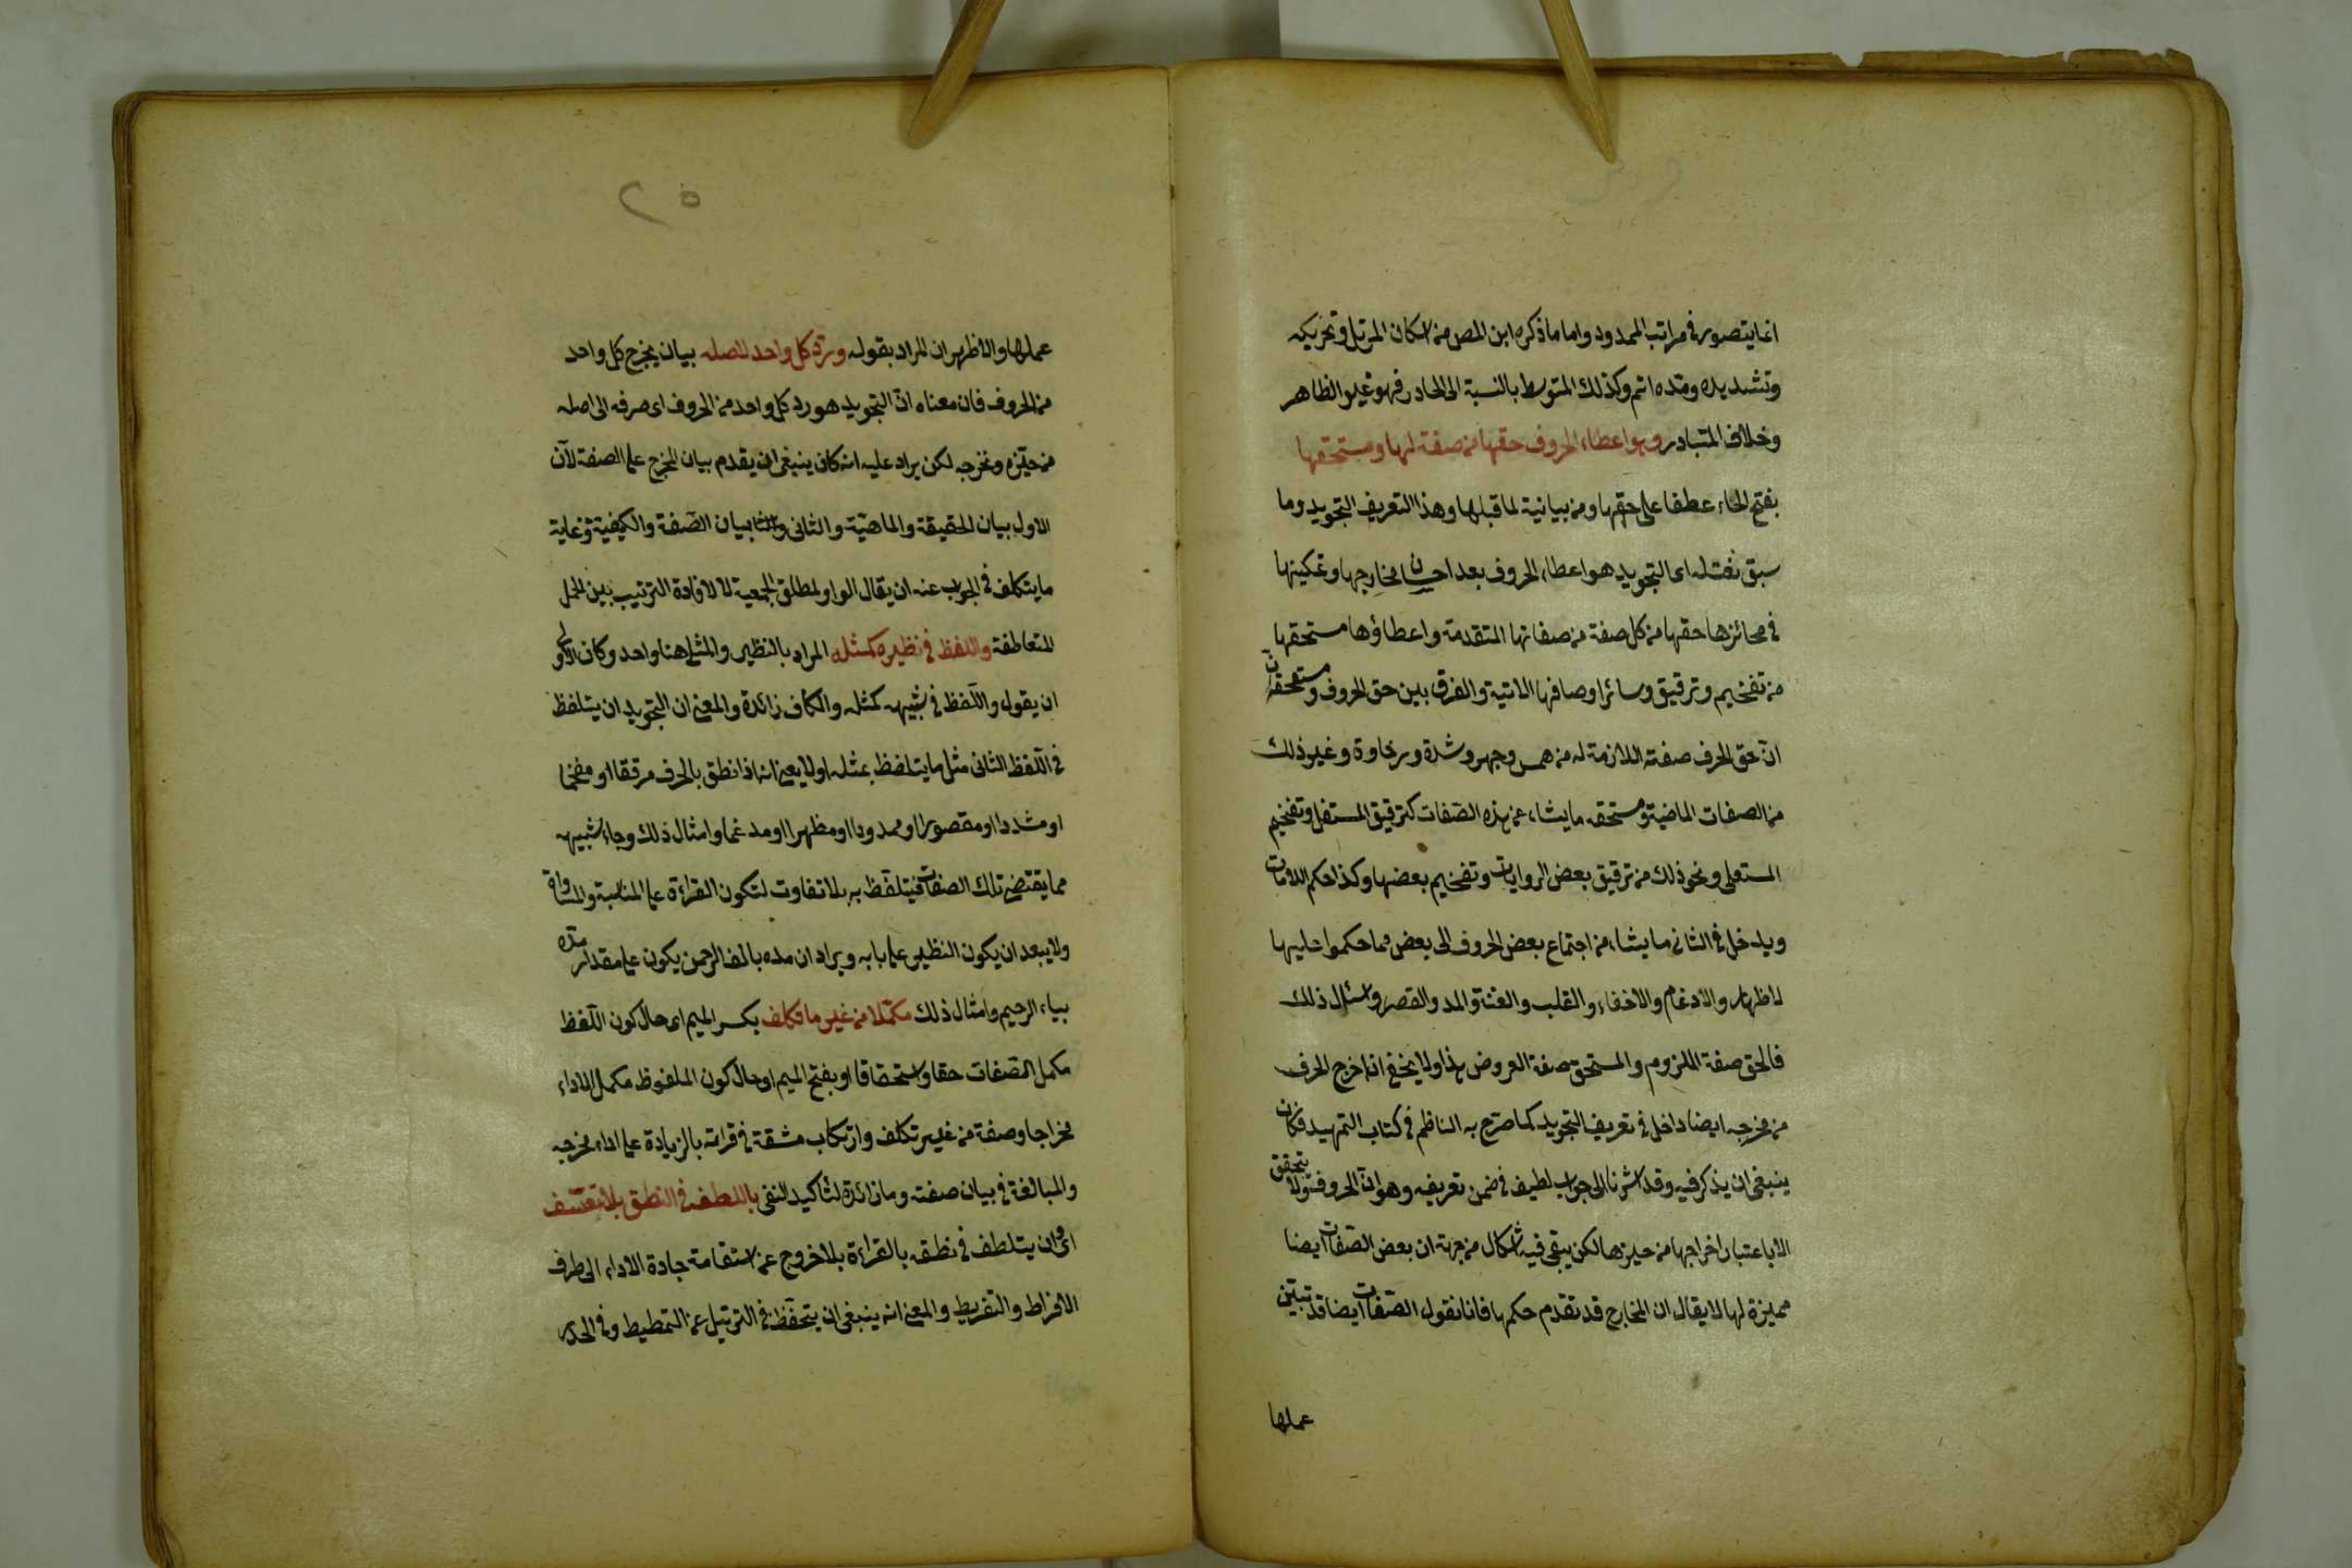 انما يتصور في مراتب الممدود واما ما ذكره ابن المص من اسكان المرتل وتحريكه
وتشديده ومده اتم وكذلك المتوسط بالنسبة الى الحادر فهو غير الظاهر
وخلاف المتبادر وهو اعطاء الحروف حقها من صفة لها ومستحقها
بفتح الحاء عطفا على حقها ومن بيانية لما قبلها وهذا التعريف التجويد وما
سبق نعته اى التجويد هو اعطاء الحروف بعد احسان مخارجها وتمكينها
في محائزها حقها من كل صفة من صفاتها المتقدمة واعطاؤها مستحقها
من تفخيم وترقيق وسائر اوصافها الاتية والفرق بين حق الحروف ومستحقها
ان حق الحرف صفته اللازمة له من همس وجهر وشدة ورخاوة وغير ذلك
من الصفات الماضية ومستحقه ما ينشاء عن هذه الصفات كترقيق المستفل وتفخيم
المستعلى ونحو ذلك من ترقيق بعض الروايات وتفخيم بعضها وكذا حكم اللامات
ويدخل في الثانى ما ينشاء من اجتماع بعض الحروف الى بعض مما حكموا عليها
لاظهار والادغام والاخفاء والقلب والغنة والمد والقصر وامثال ذلك
فالحق صفة اللزوم والمستحق صفة العروض هذا ولا يخفى ان اخرج الحرف
من مخرجه ايضا داخل في تعريف التجويد كما صرح به الناظم في كتاب التمهيد فكان
ينبغى ان يذكر فيه وقد اشرنا الى جواب لطيف في ضمن تعريفه وهو ان الحروف لا يتحقق
الا باعتبار اخراجها من حيزها لكن يبقى فيه اشكال من جهة ان بعض الصفات ايضا
مميزة لها لا يقال ان المخارج قد تقدم حكمها فانا نقول الصفات ايضا قد تبين
عملها
٢٥
عملها والاظهر ان المراد بقوله ورد كل واحد لاصله بيان مخرج كل واحد
من الحروف فان معناه ان التجويد هو رد كل واحد من الحروف اى صرفه الى اصله
من حيزه ومخرجه لكن يراد عليه انه كان ينبغى ان يقدم بيان المخرج على الصفة لآن
الاول بيان الحقيقة والماهية والثانى والثالث بيان الصفة والكيفية وغاية
ما يتكلف في الجواب عنه ان يقال الواو لمطلق الجمعية لا لافادة الترتيب بين الجمل
المتعاطفة واللفظ في نظيره كمثله المراد بالنظير والمثل هنا واحد وكان الاولى
ان يقول واللفظ في شبيهه كمثله والكاف زائدة والمعنى ان التجويد ان يتلفظ
في اللفظ الثانى مثل ما يتلفظ بمثله اولا يعنى انه اذا نطق بالحرف مرققا او مفخما
او مشددا او مقصورا او ممدودا او مظهرا او مدغما وامثال ذلك وجاء شبيهه
مما يقتضى تلك الصفات فيتلفظ به بلا تفاوت لتكون القراءة على المناسبة والمساواة
ولا يبعد ان يكون النظير على بابه ويراد ان مده بالف الرحمن يكون على مقدار مده
بياء الرحيم وامثال ذلك مكملا من غير ما تكلف بكسر الميم اى حال كون اللفظ
مكمل الصفات حقا واستحقاقا او بفتح الميم او حال كون الملفوظ مكمل الاداء
مخراجا وصفة من غير تكلف وارتكاب مشقة في قراته بالزيادة على اداء مخرجه
والمبالغة في بيان صفته وما زائدة لتاكيد النفى باللطف في النطق بلا تعسف
اى وان يتلطف في نطقه بالقراءة بلا خروج عن استقامة جادة الاداء الى طرف
الافراط والتفريط والمعنى انه ينبغى ان يتحفظ في الترتيل عن التمطيط وفي الحدر